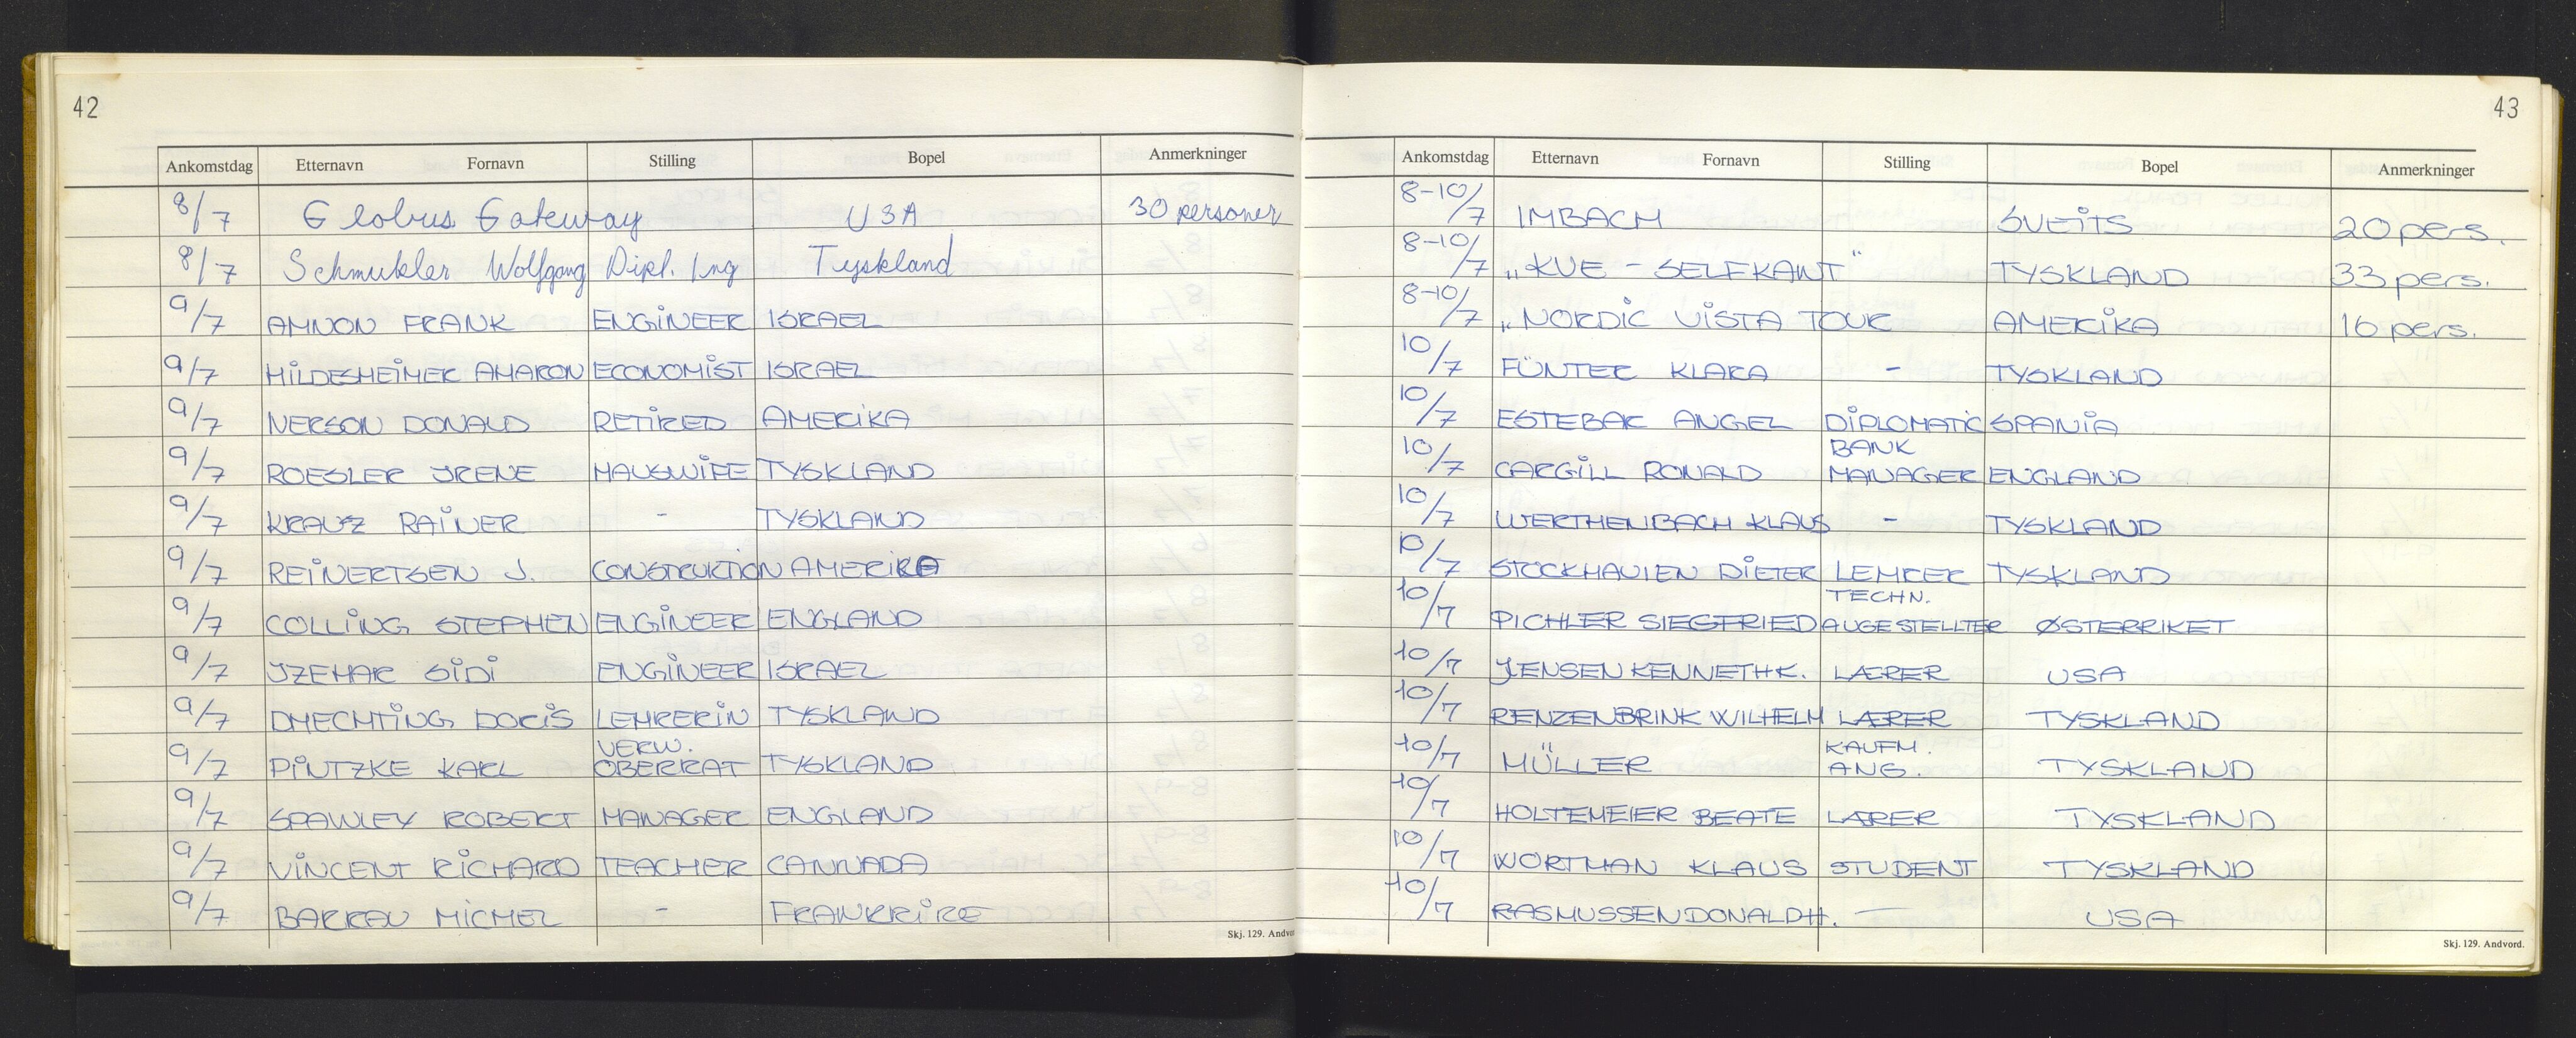 42
Ankomstdag Etternavn Fornavn Stilling Bopel Anmerkninger
8/7 Globus Gateway USA 30 personer
8/7 Schmukler Wolfgang Dipl. Ing Tyskland
9/7 AMNON FRANK ENGINEER ISRAEL
9/7 HILDESHEIMER AHARON ECONOMIST ISRAEL
9/7 NERSON DONALD RETIRED AMERIKA
9/7 ROESLER IRENE HAUSWIFE TYSKLAND
9/7 KRAUZ RAINER - TYSKLAND
9/7 REINERTSEN J. CONSTRUKTION AMERIKA
9/7 COLLING STEPHEN ENGINEER ENGLAND
9/7 IZEHAR SIDI ENGINEER ISRAEL
9/7 DHECHTING DORIS LEHRERIN TYSKLAND
VERW.
9/7 PINTZKE KARL OBERRAT TYSKLAND
9/7 SPAWLEY ROBERT MANAGER ENGLAND
9/7 VINCENT RICHARD TEACHER CANNADA
9/7 BARRAU MICHEL - FRANKRIRE
Skj. 129. Andvo
43
Ankomstdag Etternavn Fornavn Stilling Bopel Anmerkninger
8-10/7 IMBACH SVEITS 20 pers.
8-10/7 „KUE - SELFKANT" TYSKLAND 33 pers.
8-10/7 „NORDIC VISTA TOUR AMERIKA 16 pers.
10/7 FÜNTER KLARA - TYSKLAND
10/7 ESTEBAR ANGEL DIPLOMATIC SPANIA
BANK
10/7 CARGILL RONALD MANAGER ENGLAND
10/7 WERTHENBACH KLAUS - TYSKLAND
10/7 STOCKHAUSEN DIETER LEHRER TYSKLAND
TECHN.
10/7 PICHLER SIEGFRIED AUGESTELLTER ØSTERRIKET
10/7 JENSEN KENNETH K. LÆRER USA
10/7 RENZENBRINK WILHELM LÆRER TYSKLAND
KAUFM.
10/7 MÜLLER ANG. TYSKLAND
10/7 HOLTEMEIER BEATE LÆRER TYSKLAND
10/7 WORTMAN KLAUS STUDENT TYSKLAND
10/7 RASMUSSEN DONALD H. — USA
Skj. 129. Andvord.